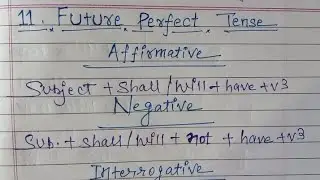 11. Future Perfect Tense
Affirmative
Subject + Shall/Will + have + v3
Negative
Sub. + Shall/Will + not + have + v3
Interrogative